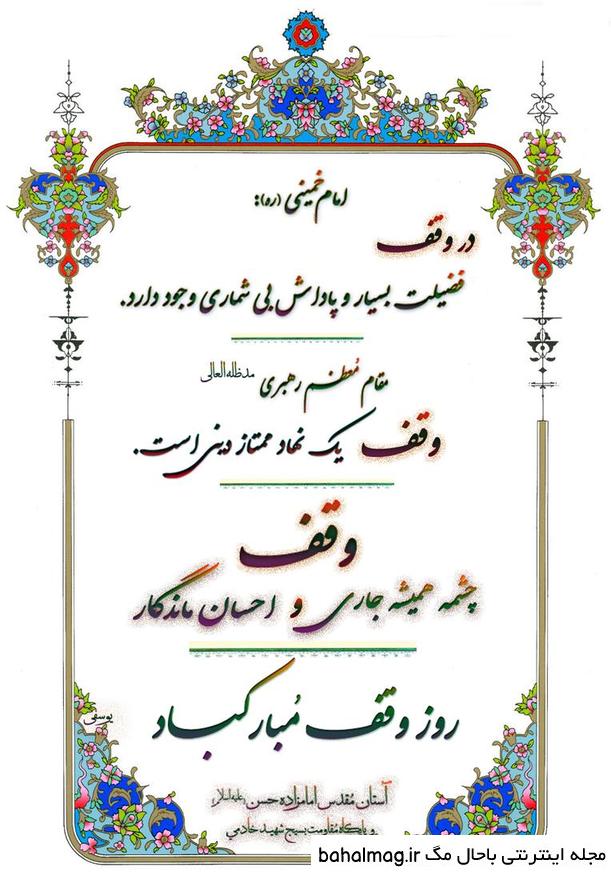 امام خمینی (ره):
در وقف
فضیلت بسیار و پاداش بی شماری وجود دارد.
مقام مُعظم رهبری مدظله‌العالی
وقف یک نهاد ممتاز دینی است.
وقف
چشمه همیشه جاری و احسان ماندگار
روز وقف مُبارکباد
یوسفی
آستان مُقدس امامزاده حسن (علیه‌السلام)
و پایگاه مقاومت بسیج شهید خادمی
مجله اینترنتی باحال مگ bahalmag.ir